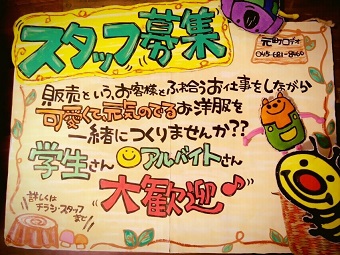 スタッフ募集
元町ロデオ
045-681-8460
販売という、お客様とふれ合うお仕事をしながら
可愛くて元気のでるお洋服を
一緒につくりませんか??
学生さん アルバイトさん
大歓迎♪
詳しくは
チラシ・スタッフ
まで!